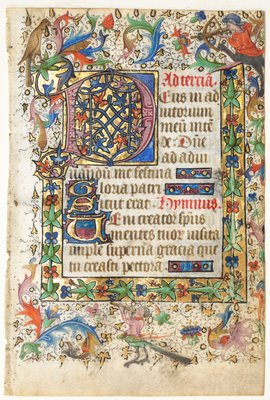 Ad terciā.
Eus in ad
iutorium
meū inte
de. Dñe
ad adiu
uandū me festina
Gloria patri
Sicut erat. Hymnus.
Ueni creator spūs
mentes tuor̄ uisita
imple superna gracia que
tu creasti pectora.